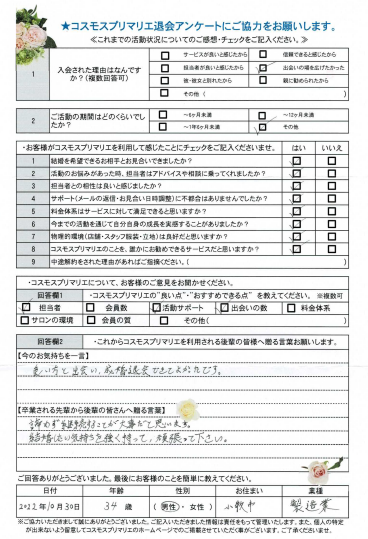 ★コスモスプリマリエ退会アンケートにご協力をお願いします。
≪これまでの活動状況についてのご感想・チェックをご記入ください。≫
1 入会された理由はなんですか?(複数回答可)
サービスが良いと感じたから 信頼できると感じたから
担当者が良いと感じたから 出会いの場を広げたかった
彼・彼女と別れたから 親に勧められたから
その他（ ）
2 ご活動の期間はどのくらいでしたか?
～6ヶ月未満 ～12ヶ月未満
～1年半未満 その他
・お客様がコスモスプリマリエを利用して感じたことにチェックをご記入くださいませ。 はい いいえ
1 結婚を希望できるお相手とお見合いできましたか?
2 活動のお悩みがあった時、担当者はアドバイスや相談に乗ってくれましたか?
3 担当者との相性は良いと感じましたか?
4 サポート(メールの返信・お見合い日時調整)に不都合はありませんでしたか?
5 料金体系はサービスに対して満足できると思いますか?
6 今までの活動を通じて自分自身の成長を実感することがありましたか?
7 物理的環境(店舗・スタッフ服装・立地)は良好だと思いますか?
8 コスモスプリマリエのことを、誰かにお勧めできるサービスだと思いますか?
9 中途解約をされた理由があればご指摘ください。( )
・コスモスプリマリエについて、お客様のご意見をお聞かせください。
回答欄1 ・コスモスプリマリエの"良い点"・"おすすめできる点" を教えてください。 ※複数可
担当者 会員数 活動サポート 出会いの数 料金体系
サロンの環境 会員の質 その他( )
回答欄2 ・これからコスモスプリマリエを利用される後輩の皆様へ贈る言葉お願いします。
【今のお気持ちを一言】
良い方と出会い、成婚退会できてよかったです。
【卒業される先輩から後輩の皆さんへ贈る言葉】
諦めず継続することが大事だと思います。
結婚したい気持ちを強く持って、頑張って下さい。
ご回答ありがとうございました。最後にお客様のことを簡単に教えてください。
日付 年齢 性別 お住まい 業種
2022年10月30日 34歳 (男性・女性) 小牧市 製造業
※ご協力いただきまして誠にありがとうございました。ご記入いただきました情報は責任をもって管理いたします。また、個人の特定
が出来ないよう留意してコスモスプリマリエのホームページでのご掲載させていただく事がございます。ご了承くださいませ。